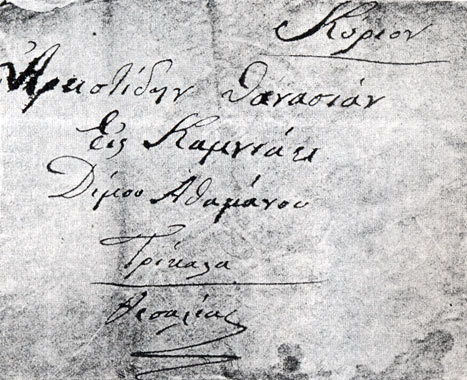 Κύριον
Αριστίδην Θανασιάν
Εις Καμνιάτι
Δίμου Αθαμάνου
Τρίκαλα
Θεσαλίας